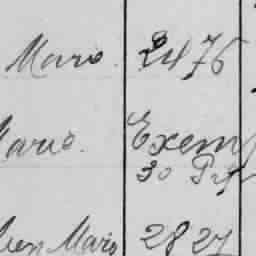 Mario. 2476
Mario. Exem
30
Mario 2827